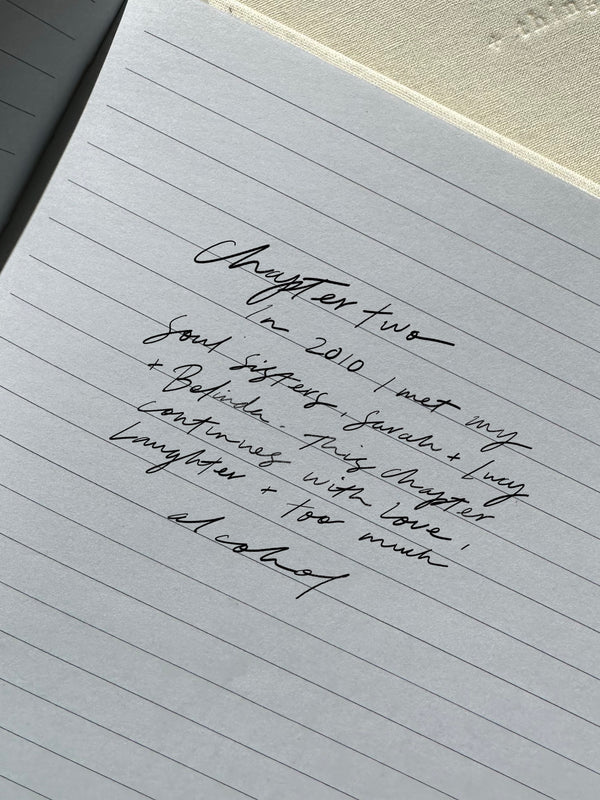 + thing
Chapter two
In 2010 I met my
soul sisters, Sarah + Lucy
+ Belinda. This chapter
continues with love,
laughter + too much
alcohol